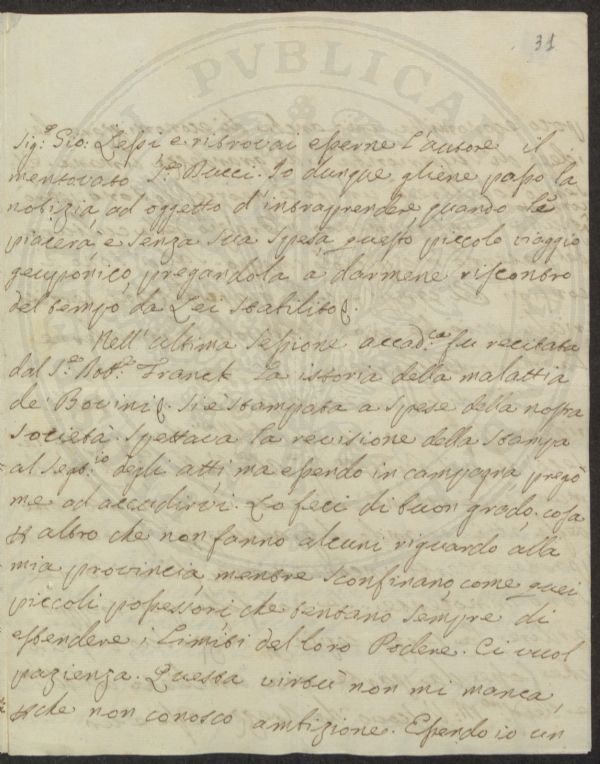 31
Sig.e Gio: Lessi e ritrovai esserne l'autore il
mentovato S.re Bucci. Io dunque gliene passo la
notizia, ad oggetto d'intraprendere, quando Le
piacerà, e senza sua spesa, questo piccolo viaggio
geoponico, pregandola a darmene riscontro
del tempo da Lei stabilito.
Nell'ultima Sessione accad.ca fu recitata
dal S.re Dott.e Franck La istoria della malattia
de' Bovini. Si è stampata a spese della nostra
Società. Spettava la revisione della stampa
al Seg.rio degli atti, ma essendo in campagna pregò
me ad accudirvi. Lo feci di buon grado, cosa
p altro che non fanno alcuni riguardo alla
mia provincia, mentre sconfinano, come quei
piccoli possessori, che tentano sempre di
estendere i Limiti del loro Podere. Ci vuol
pazienza. Questa virtù non mi manca,
pche non conosco ambizione. Essendo io un
PVBLICA